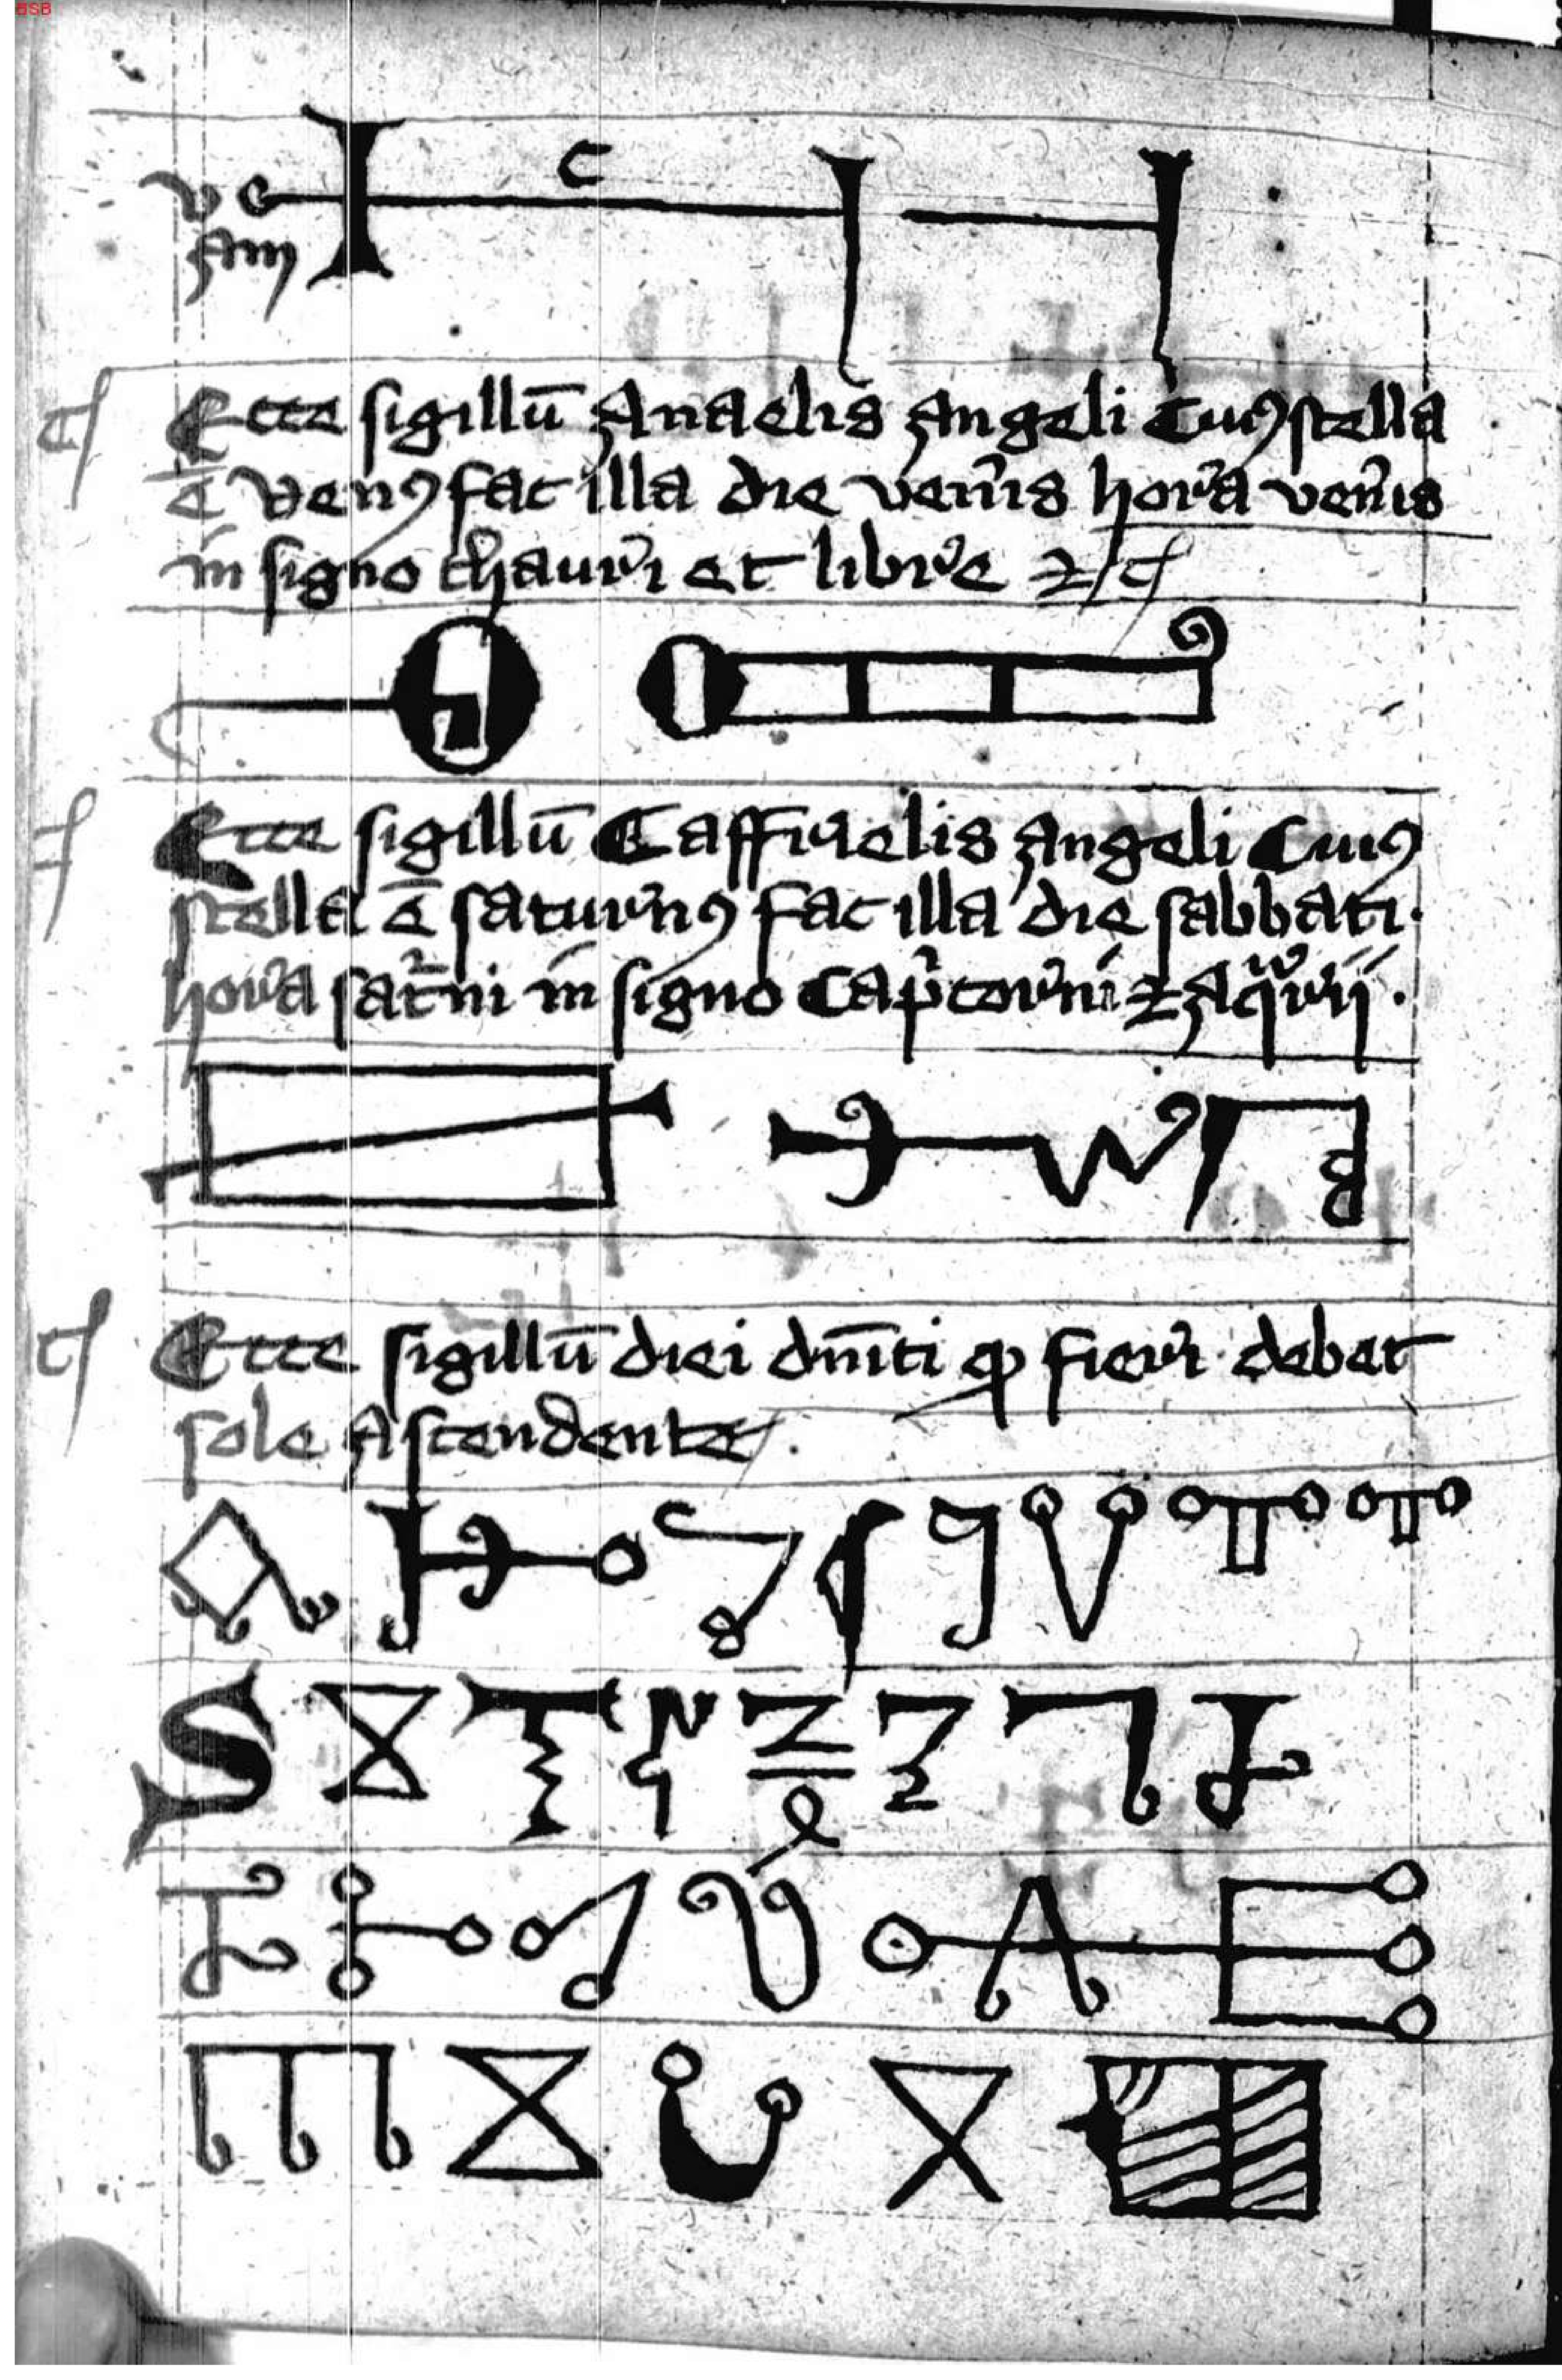 BSB
c
ve
am
Ecce sigillū Anaelis angeli Cuiꝯ stella
ē venꝯ fac illa die ven̄is hora ven̄is
in signo thauri et libre ⁊ċ
Ecce sigillū Caffrielis angeli Cuiꝯ
stella ē saturnꝯ fac illa die sabbati.
hora sat̄ni in signo Cap̄corni ⁊ Aq̄rii.
Ecce sigillū diei dn̄ici qꝫ fieri debet
sole Ascendente.